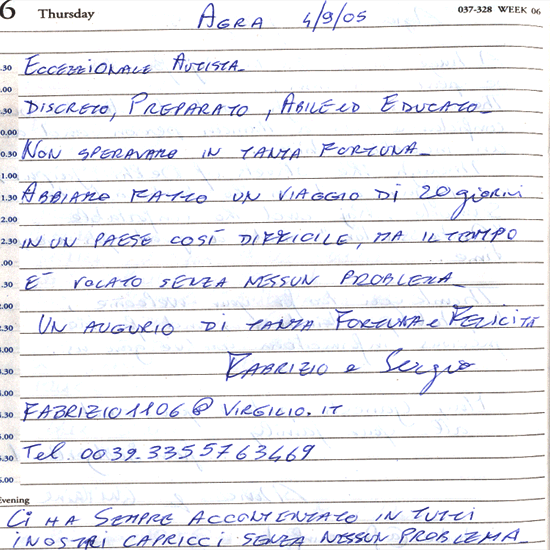 6 Thursday AGRA 4/9/05 037-328 WEEK 06
.30 ECCEZZIONALE AUTISTA
.00 DISCRETO, PREPARATO, ABILE ED EDUCATO
0.00
0.30 NON SPERAVAMO IN TANTA FORTUNA
1.00
1.30 ABBIAMO FATTO UN VIAGGIO DI 20 giorni
2.00
2.30 IN UN PAESE COSÍ DIFFICILE, MA IL TEMPO
.00
.30 É VOLATO SENZA NESSUN PROBLEMA
2.00
2.30 UN AUGURIO DI TANTA FORTUNA e FELICITÁ
3.00
3.30 FABRIZIO e Sergio
4.00
4.30 FABRIZIO1106@VIRGILIO.IT
5.00
5.30 Tel. 0039.3355763469
6.00
Evening
CI HA SEMPRE ACCONTENTATO IN TUTTI
I NOSTRI CAPRICCI SENZA NESSUN PROBLEMA